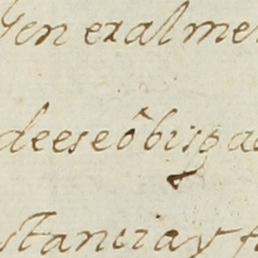 Generalmen
deeseôbispad
stanciay f